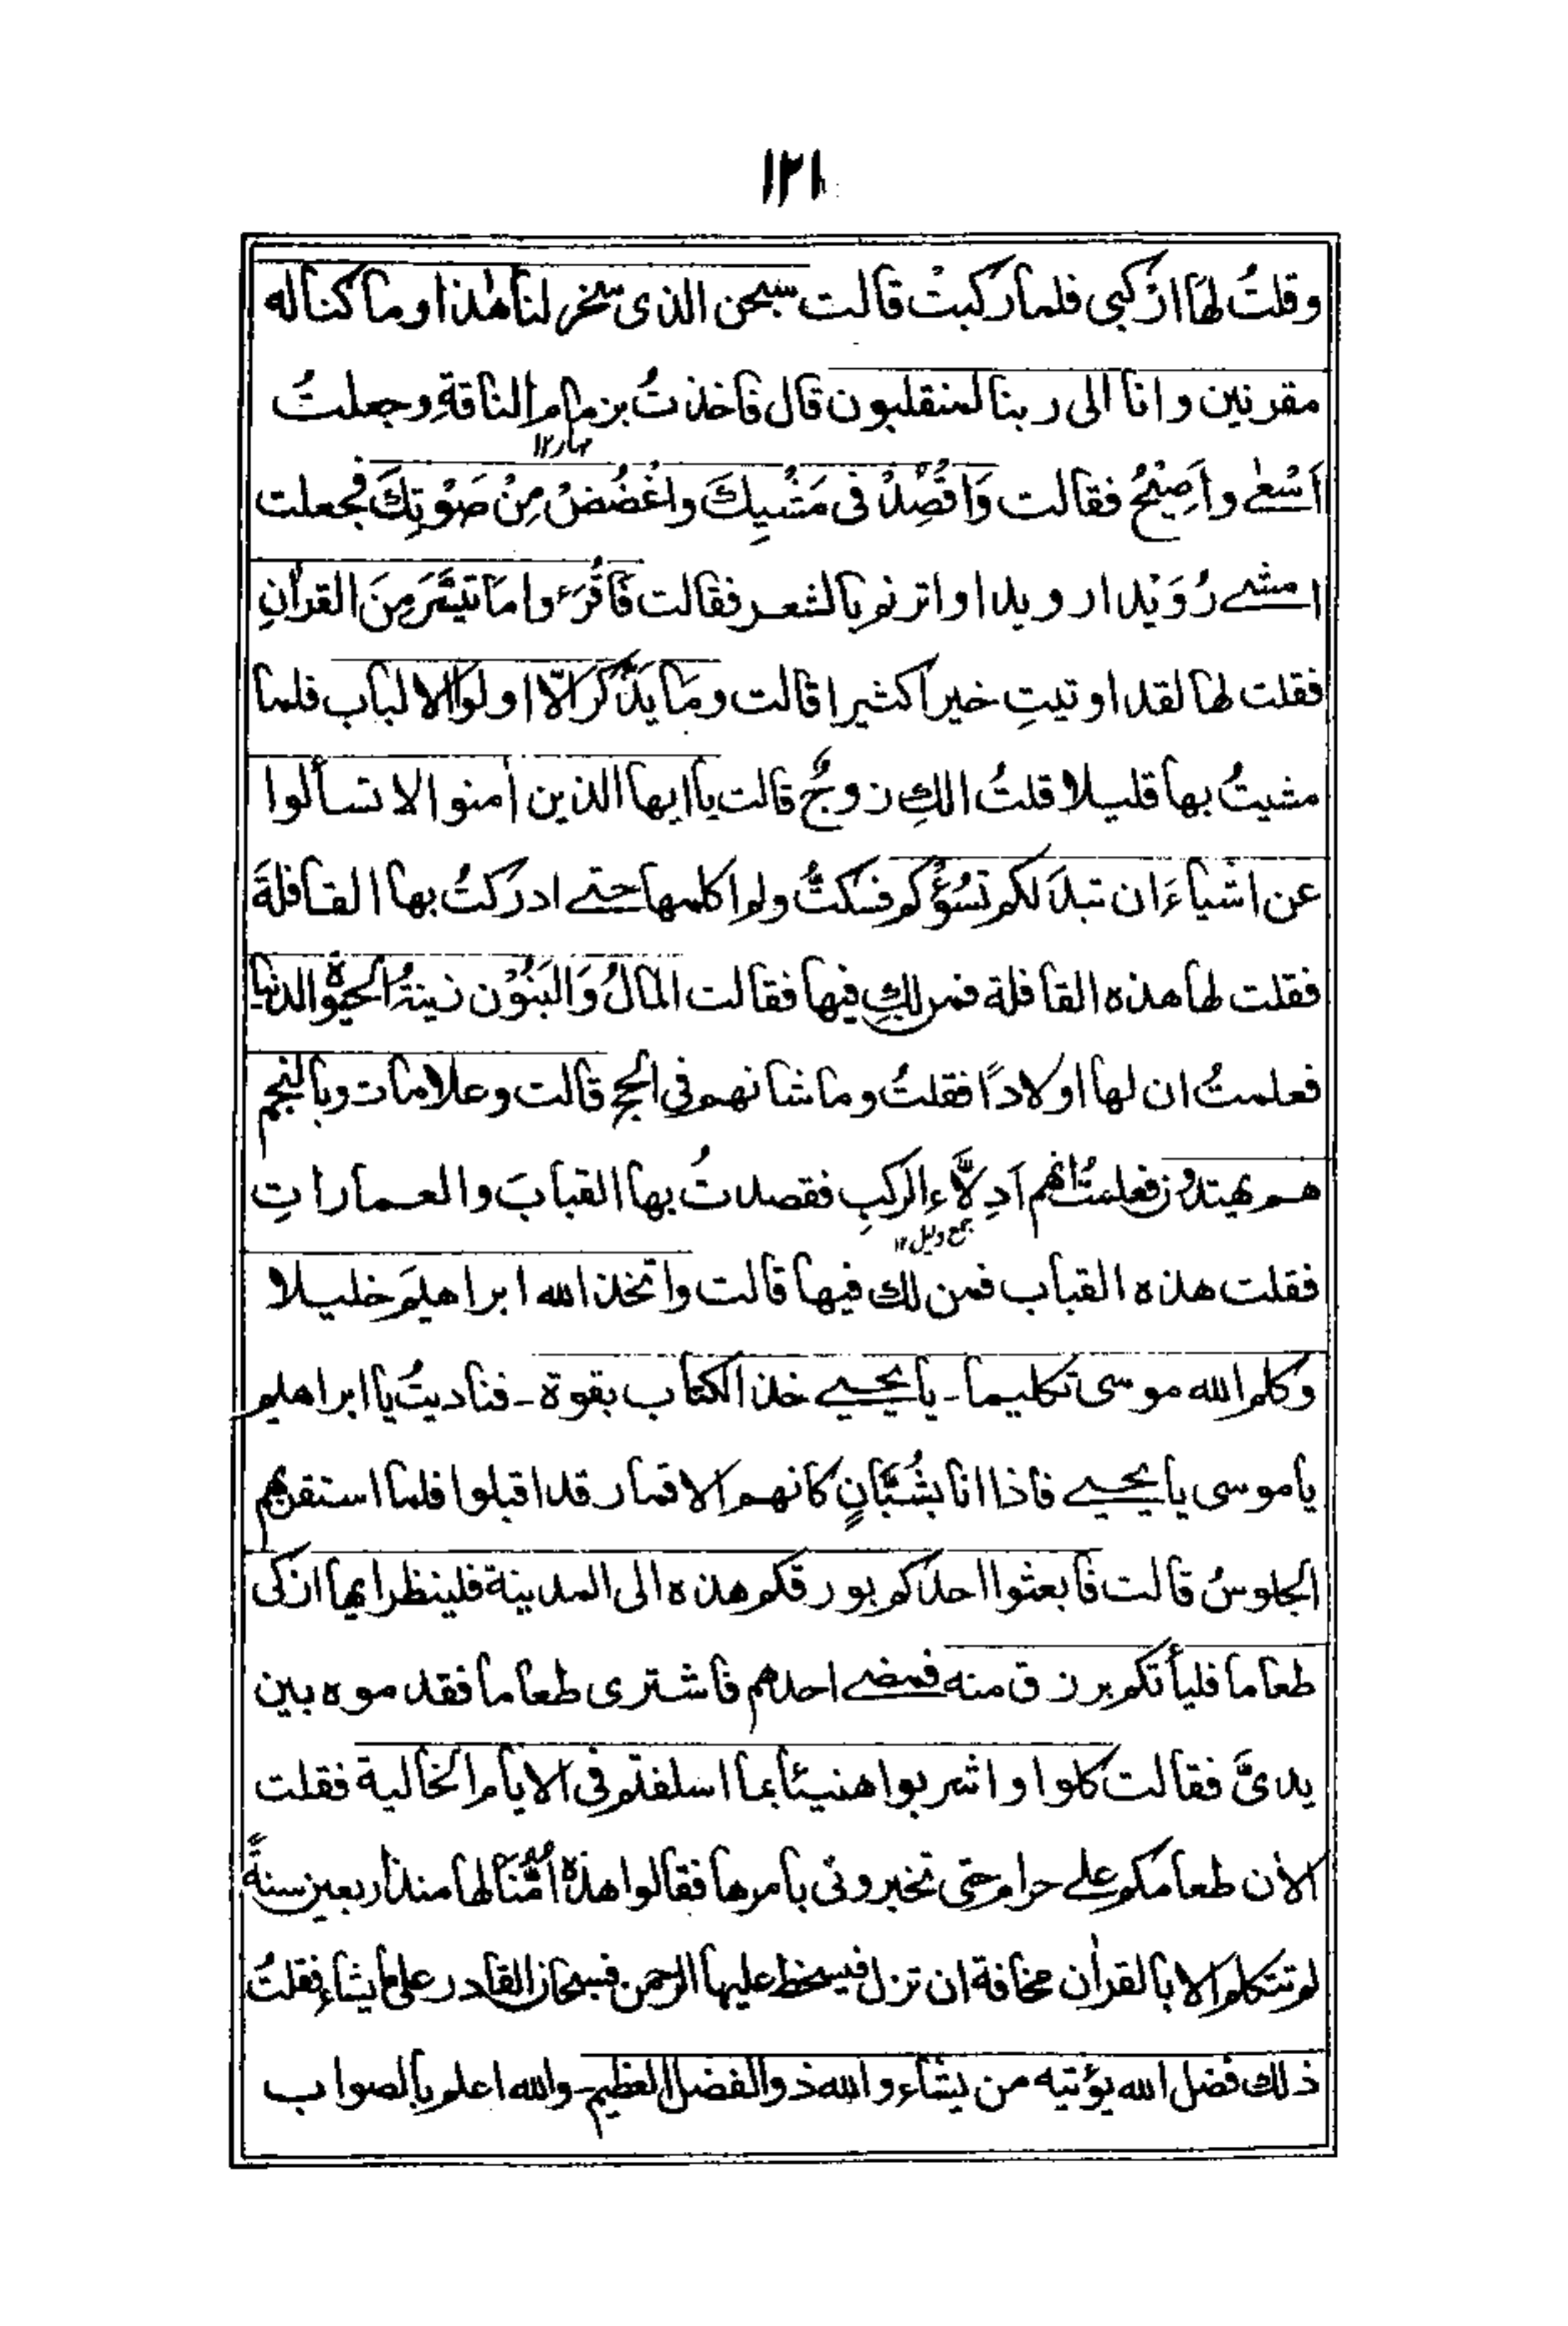 ١٢١
وقلتُ لها ارْكبى فلما ركبتْ قالت سبحن الذى سخر لنا هٰذا وما كنا له
مقرنين وانا الى ربنا لمنقلبون قال فاخذتُ بزمام الناقةِ وجعلتُ
مہار١٢
اَسْعٰى واَصِيْحُ فقالت وَاقْصِدْ فى مَشْيِكَ واغْضُضْ مِنْ صَوْتِكَ فجعلت
امشے رُوَيْدا رويدا واترنم بالشعر فقالت فَاقْرَءوا مَا تَيَسَّرَ مِنَ القراٰنِ
فقلت لها لقد اوتيتِ خيرا كثيرا قالت ومَا يَذَّكَّرُ الّا اولوا الالباب فلما
مشيتُ بها قليلا قلتُ الكِ زوجٌ قالت يا ايها الذين اٰمنوا لا تسألوا
عن اشياءَ ان تبدَ لكم تسُؤْكم فسكتُّ ولم اكلمها حتے ادركتُ بها القافلةَ
فقلت لها هذه القافلة فمن لكِ فيها فقالت المَالُ وَالبَنُوْن زينةُ الحيٰوة الدنيا
فعلمتُ ان لها اولاداً فقلتُ وما شانهم فى الحج قالت وعلامات وبالنجم
هم يهتدون فعلمتُ انهم اَدِلَّاء الركبِ فقصدتُ بها القبابَ والعماراتِ
جمع دليل١٢
فقلت هذه القباب فمن لك فيها قالت واتخذ الله ابراهيمَ خليلا
وكلم الله موسى تكليما۔ يا يحيے خذ الكتاب بقوة۔ فناديتُ يا ابراهيم
يا موسى يا يحيے فاذا انا بشُبَّانٍ كانهم الاقمار قد اقبلوا فلما استقر بهم
الجلوسُ قالت فابعثوا احدكم بورقكم هذه الى المدينة فلينظر ايها ازكى
طعاما فليأتكم برزق منه فمضے احدهم فاشترى طعاما فقدموه بين
يدىَّ فقالت كلوا واشربوا هنيئا بما اسلفتم فى الايام الخالية فقلت
الاٰن طعامكم علے حرام حتى تخبرونى بامرها فقالوا هذه اُمُّنَا لها منذ اربعين سنةً
لم تتكلم الا بالقراٰن مخافة ان تزل فيسخط عليها الرحمن فسبحان القادر على ما يشاء فقلتُ
ذلك فضل الله يؤتيه من يشاء والله ذو الفضل العظيم۔ والله اعلم بالصواب